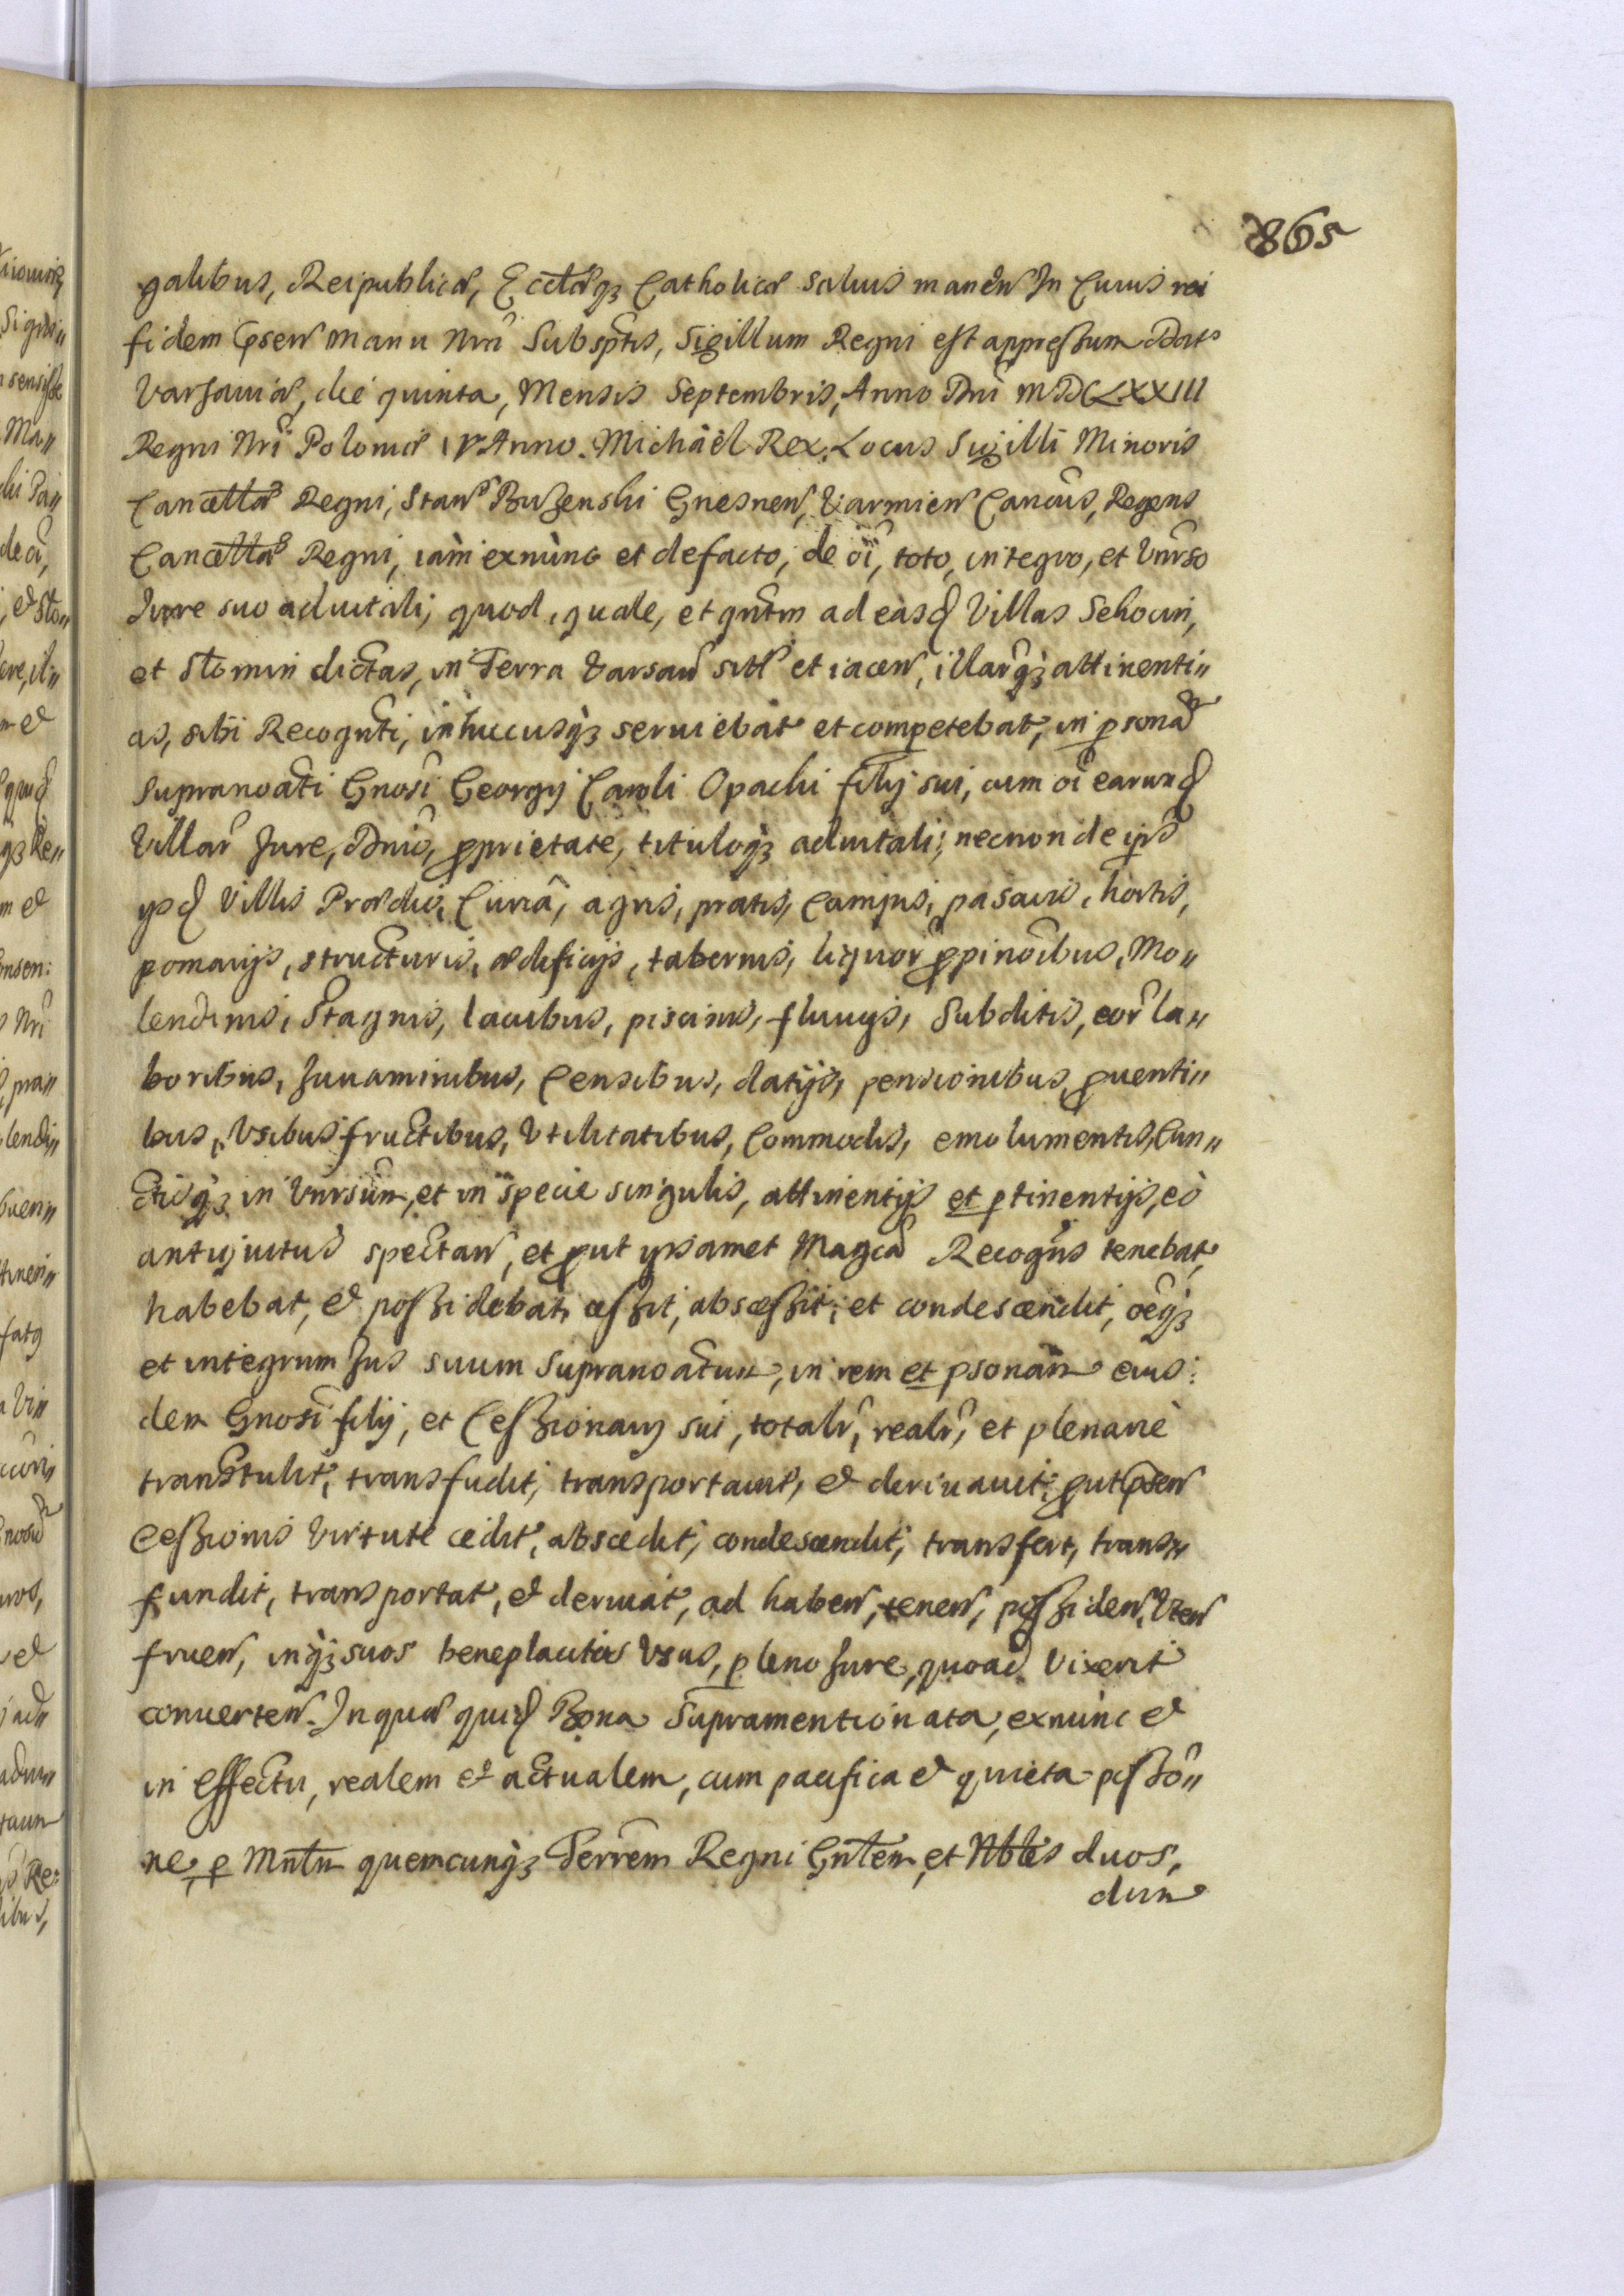 865
galibus, Reipublicæ, Ecclæq́ꝫ Catholicæ saluis manen̄ In Cuius rei
fidem p̄sen̄ manu Nrâ Subsp̄tis, Sigillum Regni est appressum Dat
Varsauiæ, die quinta, Mensis Septembris, Anno Dni MDCLXXIII
Regni Nri Poloniæ IV Anno. Michaël Rex. Locus Sigilli Minoris
Cancellæ Regni, Stan̄ Buzenski Gnesnen̄, Varmien̄ Canc̄us, Regens
Cancellæ Regni, iàm exnùnc et defacto, de oi, toto, integro, et Vnr̄so
Jure suo aduitali, quod, quale, et qntm̄ ad easd Villas Sekocin,
et Stomin dictas, in Terra Varsau̅ sitt et iacen̄, illarq́ꝫ attinenti„
as, sibi Recognti, inhucusq́ꝫ seruiebat et competebat, in ꝑsonā
supranoati Gnosi Georgij Caroli Opacki filij sui, cum oi earund
Villar̄ Jure, Dnio, ꝓprietate, tituloq́ꝫ aduitali; necnon de ips̄
ysd Villis Prædio, Curiâ, agris, pratis, Campis, pascuis, hortis,
pomarijs, structuris, ædificijs, tabernis, liquor̄ ꝓpinōibus, Mo„
lendinis, Stagnis, lacubus, piscinis, fluuijs, Subditis, eor̄ la„
boribus, Juuaminibus, Censibus, datijs, pensionibus, ꝓuenti„
bus, Vsibusfructibus, Vtilitatibus, Commodis, emolumentis, Cun„
ctisq́ꝫ in Vnr̄sum, et in specie singulis, attinentijs et ꝑtinentijs, eò
antiquitus spectan̄, et ꝓut ipsamet Magcā Recogn̄s tenebat,
habebat, & possidebat, cessit, abscessit, et condescendit, oeq́ꝫ
et integrum Jus suum Supranoatum, in rem et ꝑsonam eius:
dem Gnosi filij, et Cessionarij sui, totalr̄, realr̄, et plenariè
transtulit, transfudit, transportauit, & deriuauit; ꝓut p̄sen̄
Cessionis Virtute cedit, abscedit, condescendit, transfert, trans„
fundit, transportat, & deriuat, ad haben̄, tenen̄, possiden̄, Vten̄
fruen̄, inq́ꝫ suos beneplacitos Vsus, pleno Jure, quoad Vixerit
conuerten̄. In quæ quid Bona Supramentionata, exnùnc &
in effectu, realem & actualem, cum pacifica & quieta possiō„
ne, ꝑ Mntm̄ quemcunq́ꝫ Terrem̄ Regni Gnlem̄, et Nbles duos,
dum